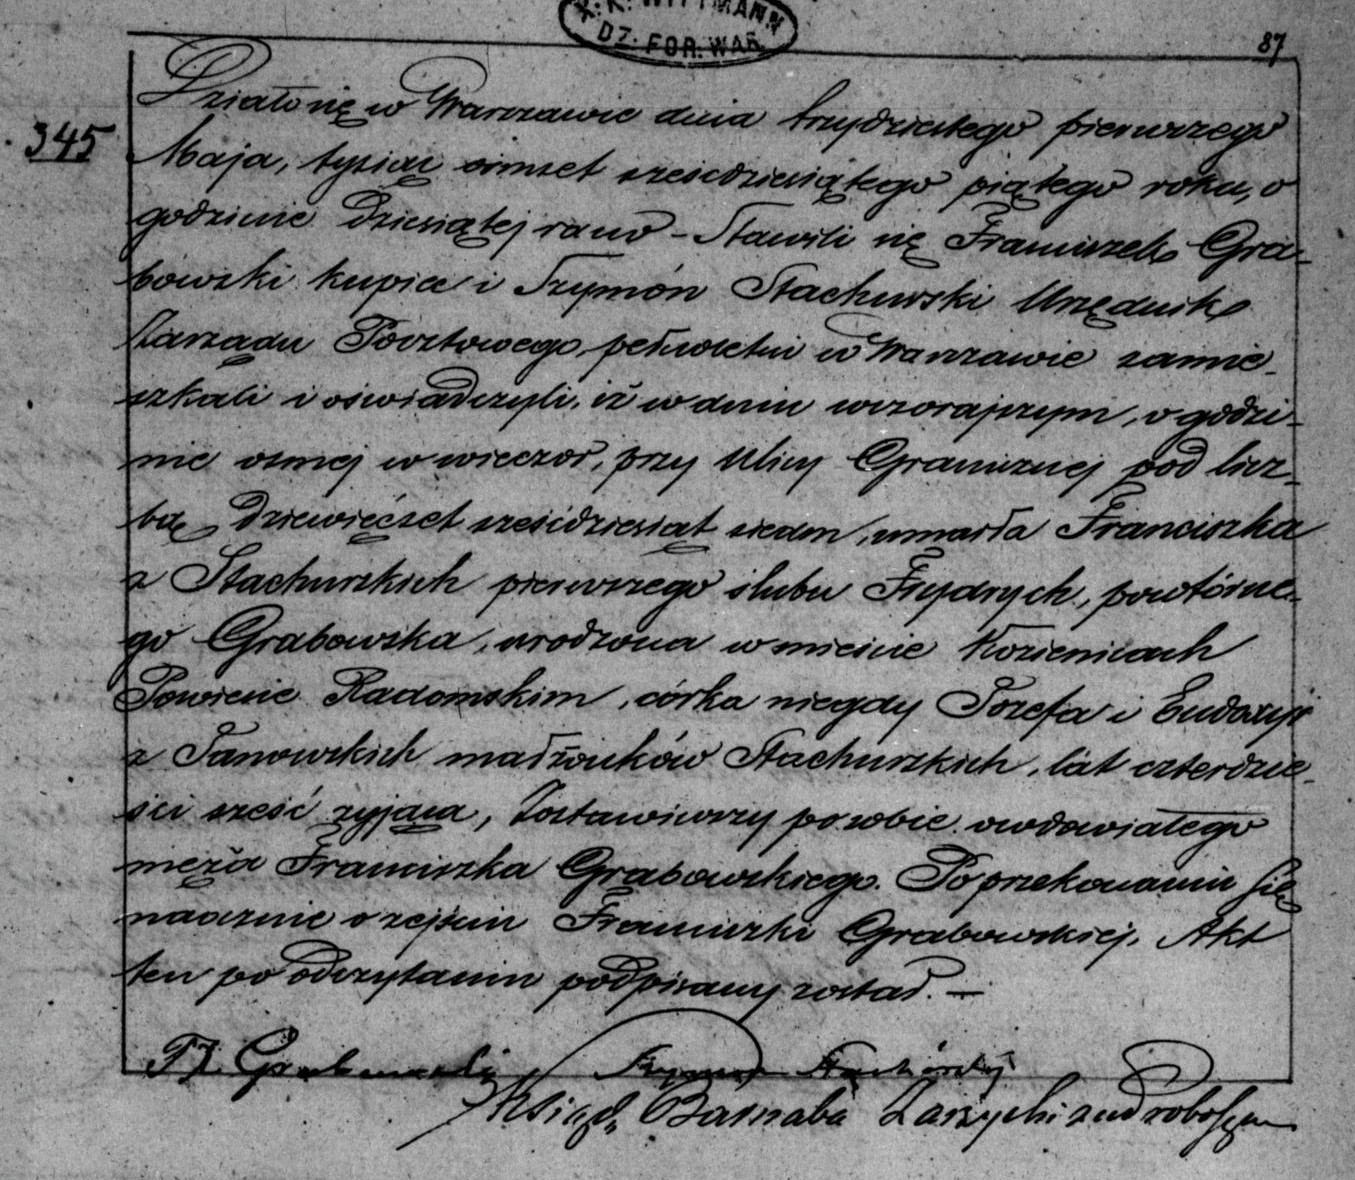 K. K. WITTMANN
DZ. FOR. WAR.
87
345
Działo się w Warszawie dnia trzydziestego pierwszego
Maja, tysiąc ośmset sześćdziesiątego piątego roku, o
godzinie dziesiątej rano – Stawili się Franciszek Gra-
bowski kupiec i Szymón Stachurski Urzędnik
Zarządu Pocztowego, pełnoletni w Warszawie zamie-
szkali i oświadczyli, iż w dniu wczorajszym, o godzi-
nie ósmej w wieczór, przy Ulicy Granicznej pod licz-
bą dziewięćset sześćdziesiąt siedm, umarła Franciszka
z Stachurskich pierwszego ślubu Frydrych, powtórne-
go Grabowska, urodzona w mieście Kozienicach
Powiecie Radomskim, córka niegdy Józefa i Eudozyi
z Janowskich małżonków Stachurskich, lat czterdzie-
ści sześć żyjąca, Zostawiwszy po sobie owdowiałego
męża Franciszka Grabowskiego. Po przekonaniu się
naocznie o zejściu Franciszki Grabowskiej, Akt
ten po odczytaniu podpisany został. —
Grabowski Szymon Stachórski
Ksiądz Barnaba Zarzycki